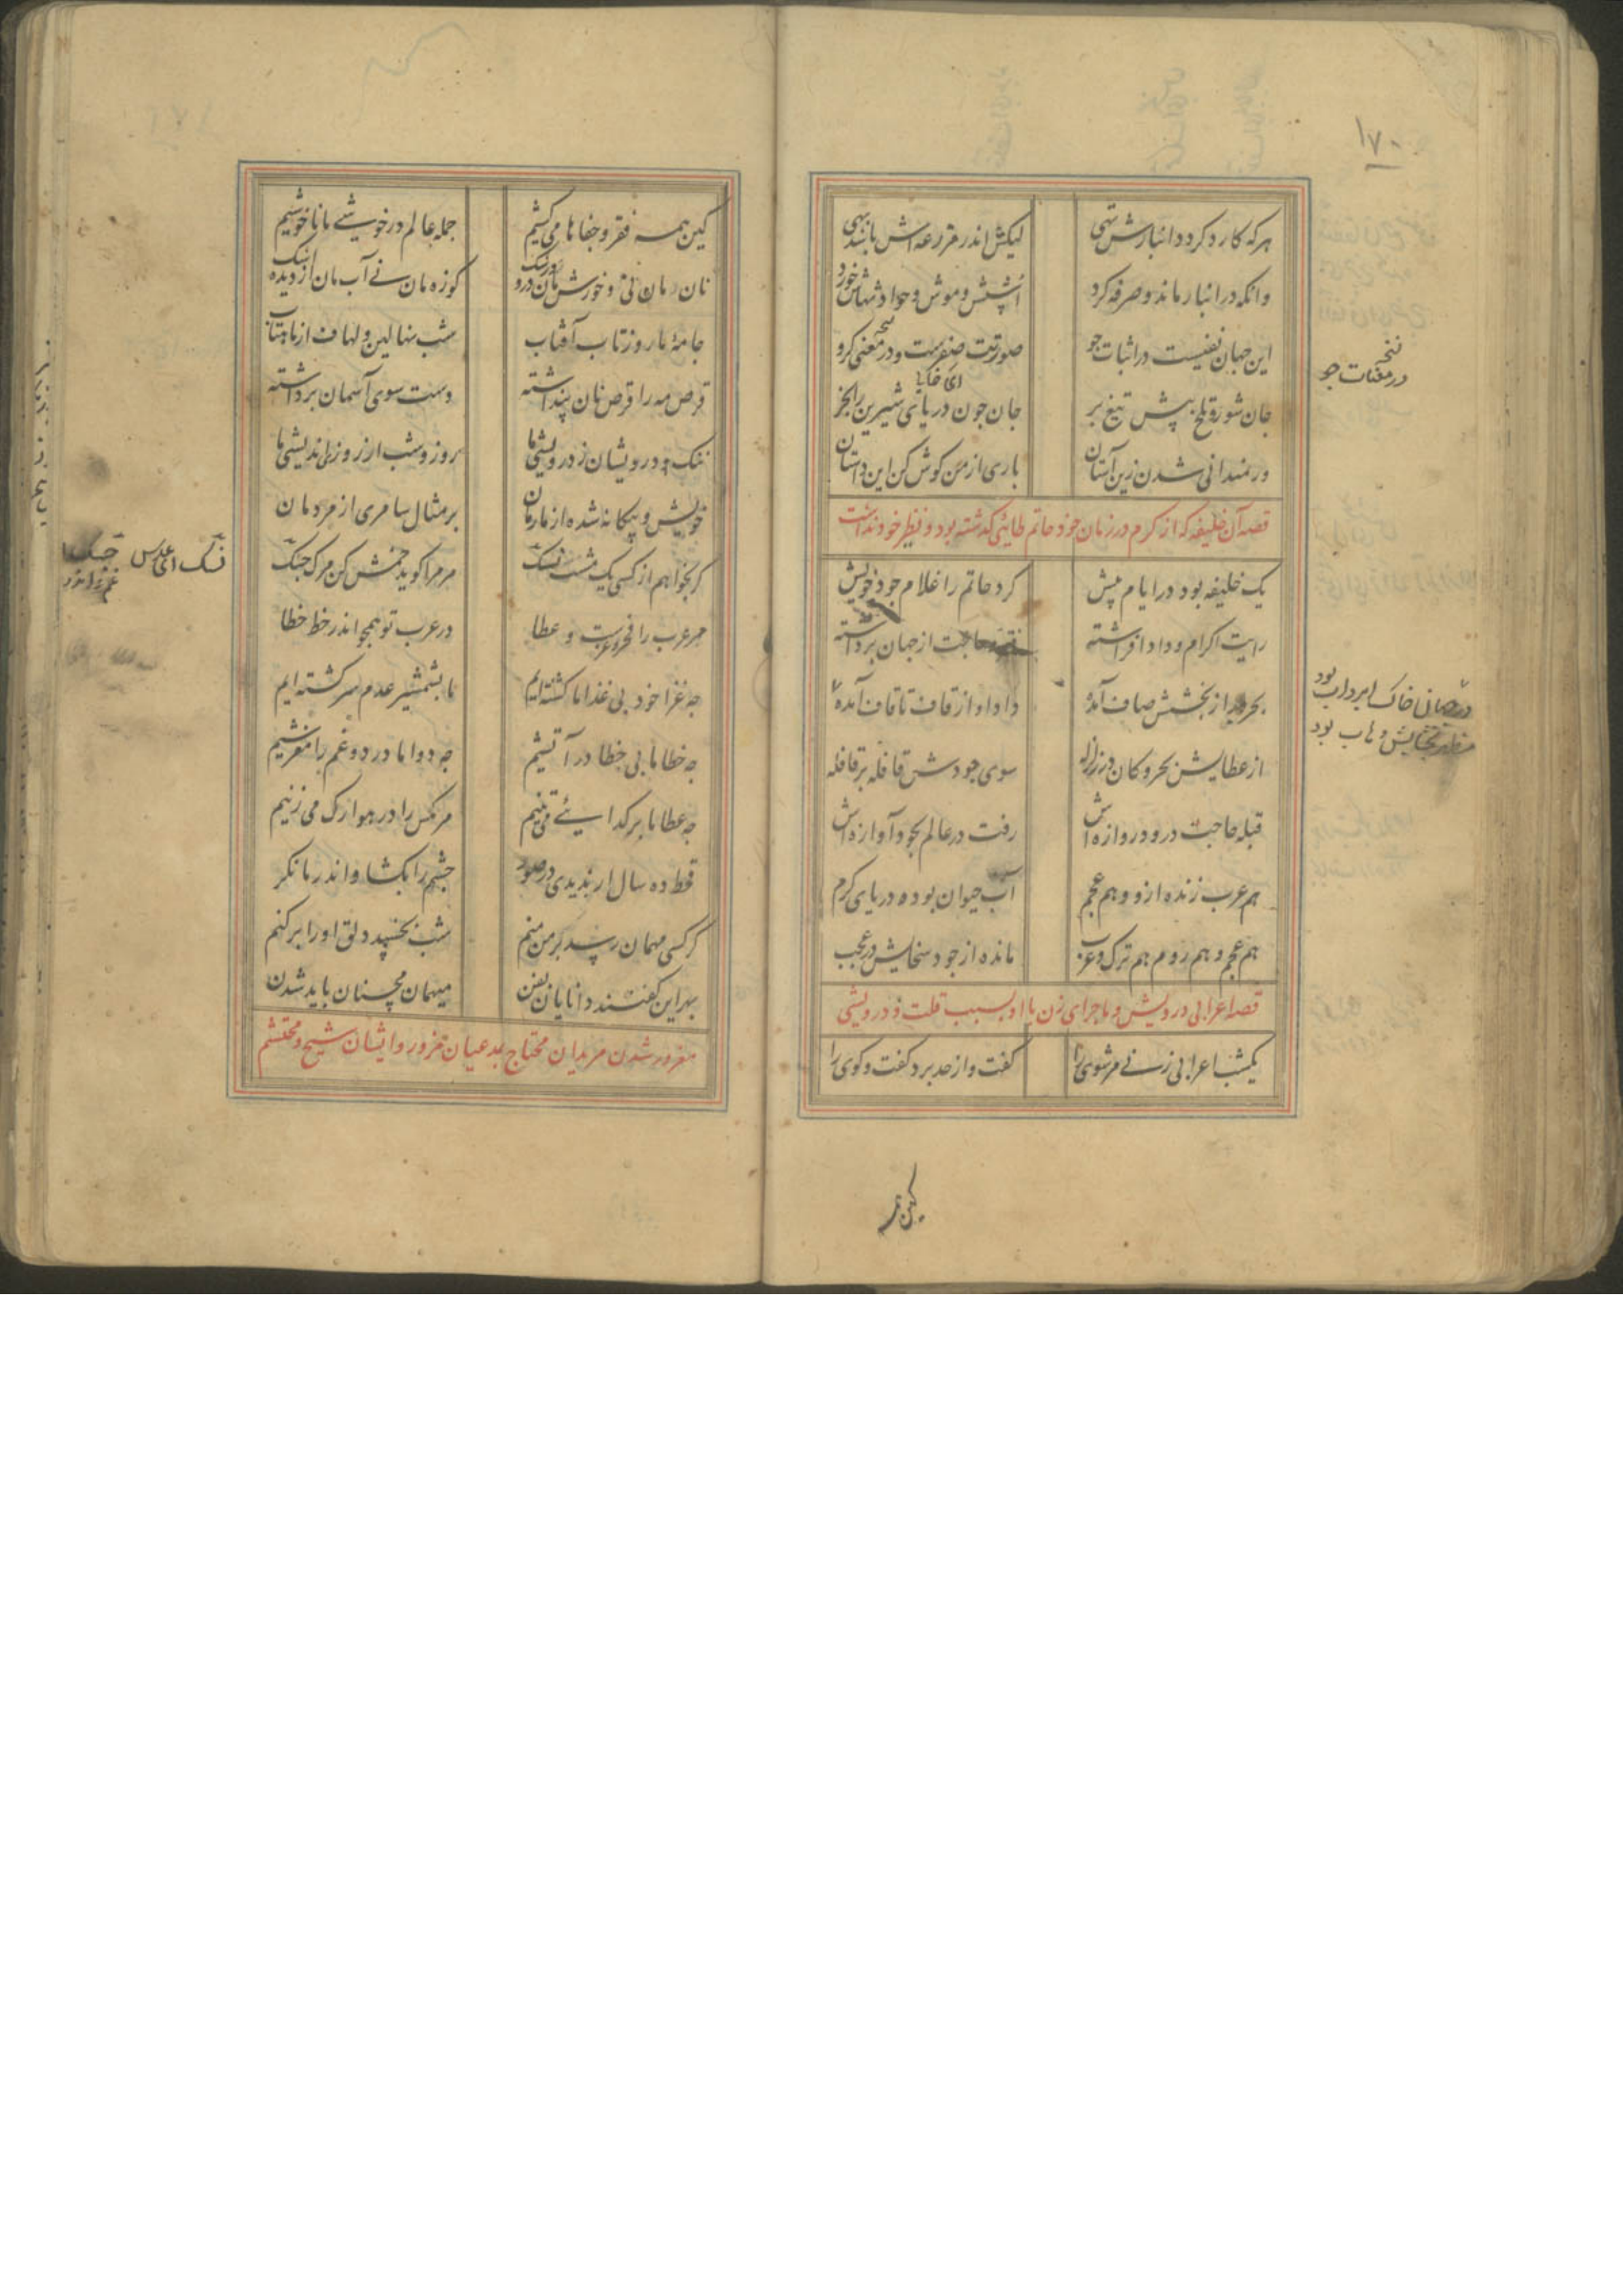 ۱۷۰
هرکه کارد کردد انبارش تهی لیکش اندر مزرعه اش باشد بهی
وانکه در انبار ماند و صرفه کرد اشپش و موش و حوادثهاش خورد
این جهان نفیست در اثبات جو صورتت صفرست و در معنی کرو
جان شور تلخ پیش تیغ بر جان چون دریای شیرین را بخر
ور نمیدانی شدن زین آستان باری از من کوش کن این داستان
قصه آن خلیفه که از کرم در زمان خود حاتم طائی کذشته بود و نظیر خود نداشت
یک خلیفه بود در ایام پیش کرد حاتم را غلام جود خویش
رایت اکرام و داد افراشته حاجت از جهان برداشته
بحر از بخشش صاف آمده داد او از قاف تا قاف آمده
از عطایش بحر و کان در زلزله سوی جودش قافله بر قافله
قبله حاجت در و دروازه اش رفت در عالم بجود آوازه اش
هم عرب زنده ازو و هم عجم آب حیوان بود و دریای کرم
هم عجم و هم روم هم ترک و عرب مانده از جود و سخایش در عجب
قصه اعرابی درویش و ماجرای زن با او بسبب قلت و درویشی
یکشب اعرابی زنی مر شوی را کفت و از حد برد کفت و کوی را
در معنات جو
ای خدایا
کین همه
کین همه فقر و جفا ما می کشیم جمله عالم در خوشی ما ناخوشیم
نان مان نی نان خورش مان درد و رشک کوزه مان نی آب مان از دیده اشک
جامهٔ ما روز تاب آفتاب شب نهالین و لحاف از ماهتاب
قرص مه را قرص نان پنداشته دست سوی آسمان برداشته
ننک درویشان ز درویشی ما روز و شب از روزی اندیشی ما
خویش و بیکانه شده از ما رمان بر مثال سامری از مردمان
کر بخواهم از کسی یک مشت نسک مر مرا کوید خمش کن مرک جسک
مر عرب را فخر غزوست و عطا در عرب تو همچو اندر خط خطا
چه غزا خود بی غذا ما کشته ایم ما بشمشیر عدم سرکشته ایم
چه خطا ما بی خطا در آتشیم چه دوا ما درد و غم را مفرشیم
چه عطا ما بر کدایئی می تنیم مر مکس را در هوا رک می زنیم
قحط ده سال ار ندیدی در صور چشم را بکشا و اندر ما نکر
کر کسی مهمان رسد کر من منم شب بخسپد دلق او را برکنم
بهر این کفتند دانایان بفن میهمان محسنان باید شدن
مغرور شدن مریدان محتاج بمدعیان مزور و ایشان شیخ و محتشم
نسک ای عدس